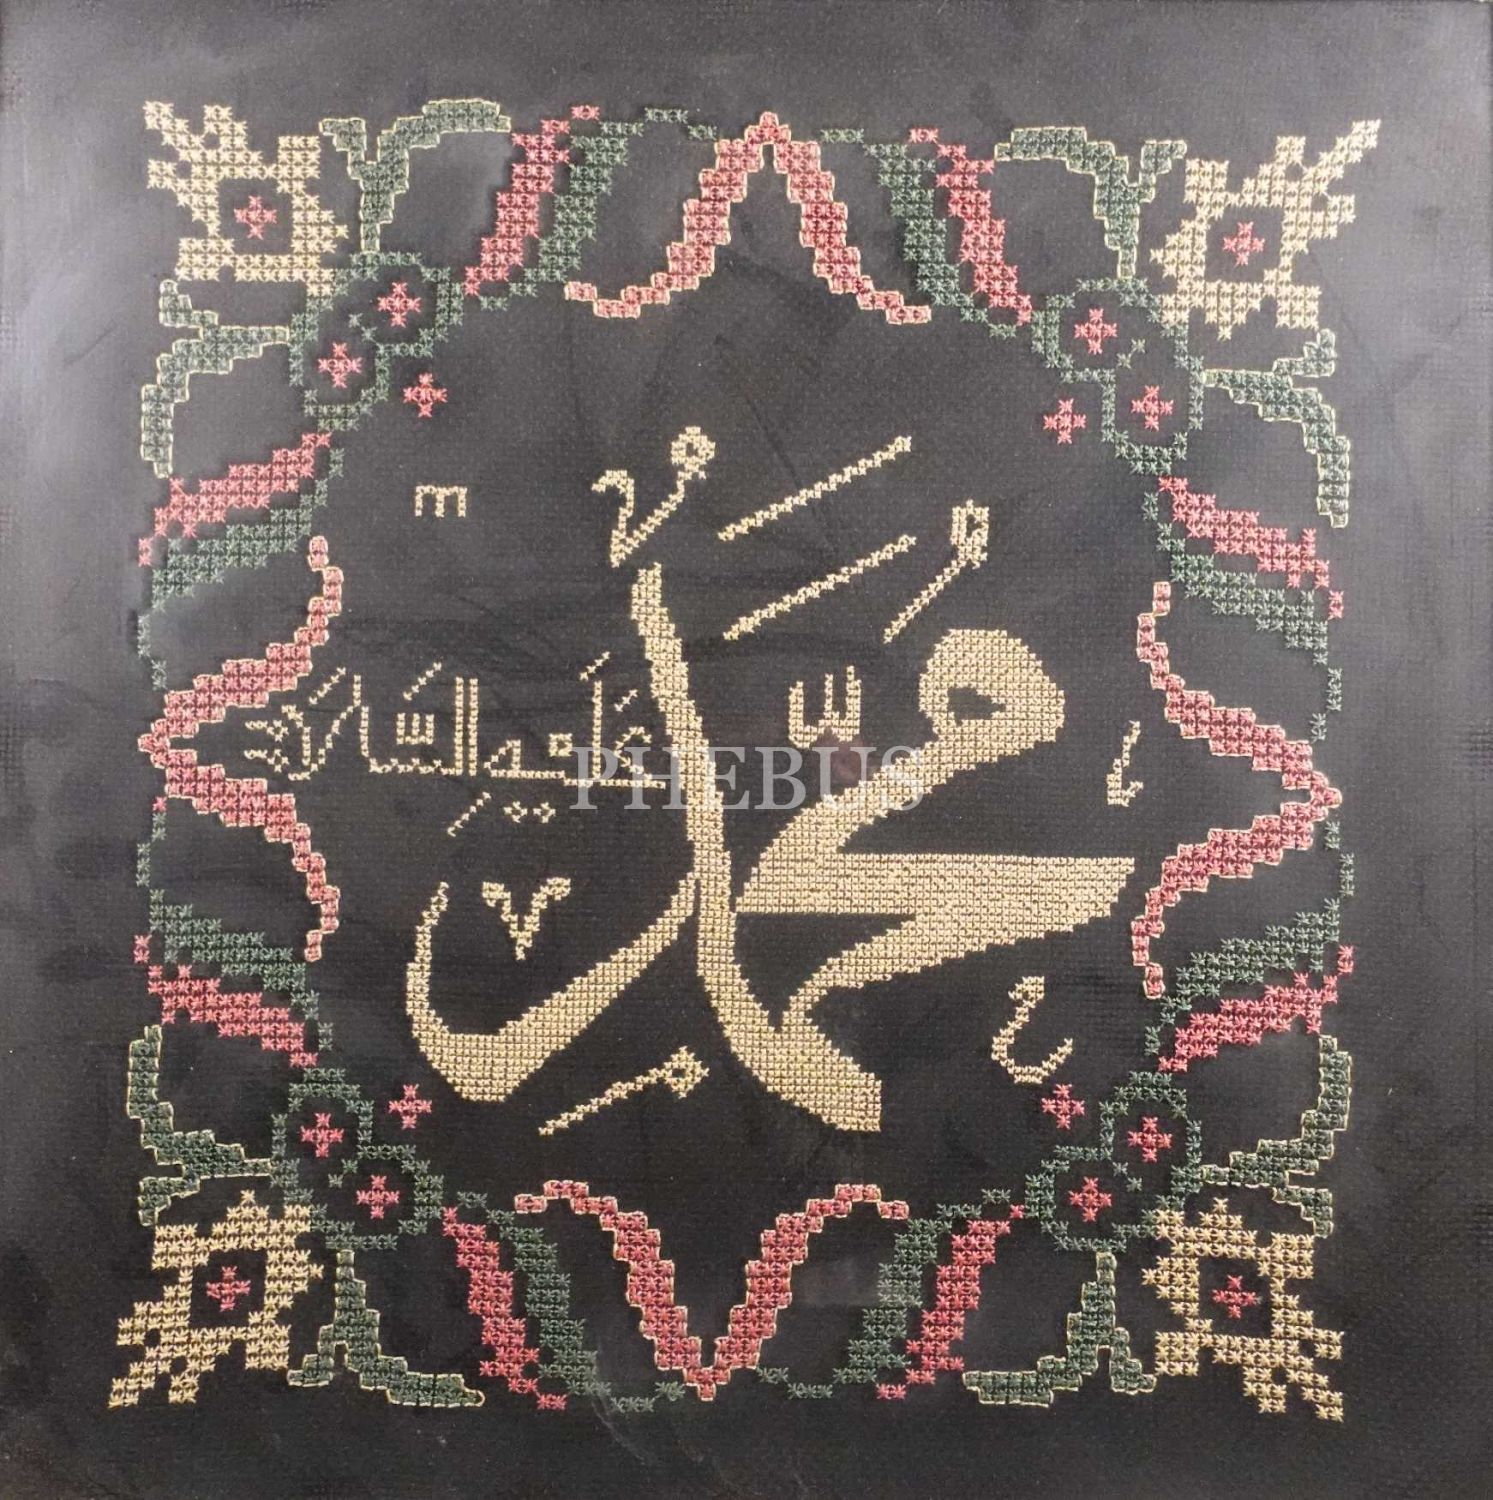 محمد
عليه السلام
PHEBUS